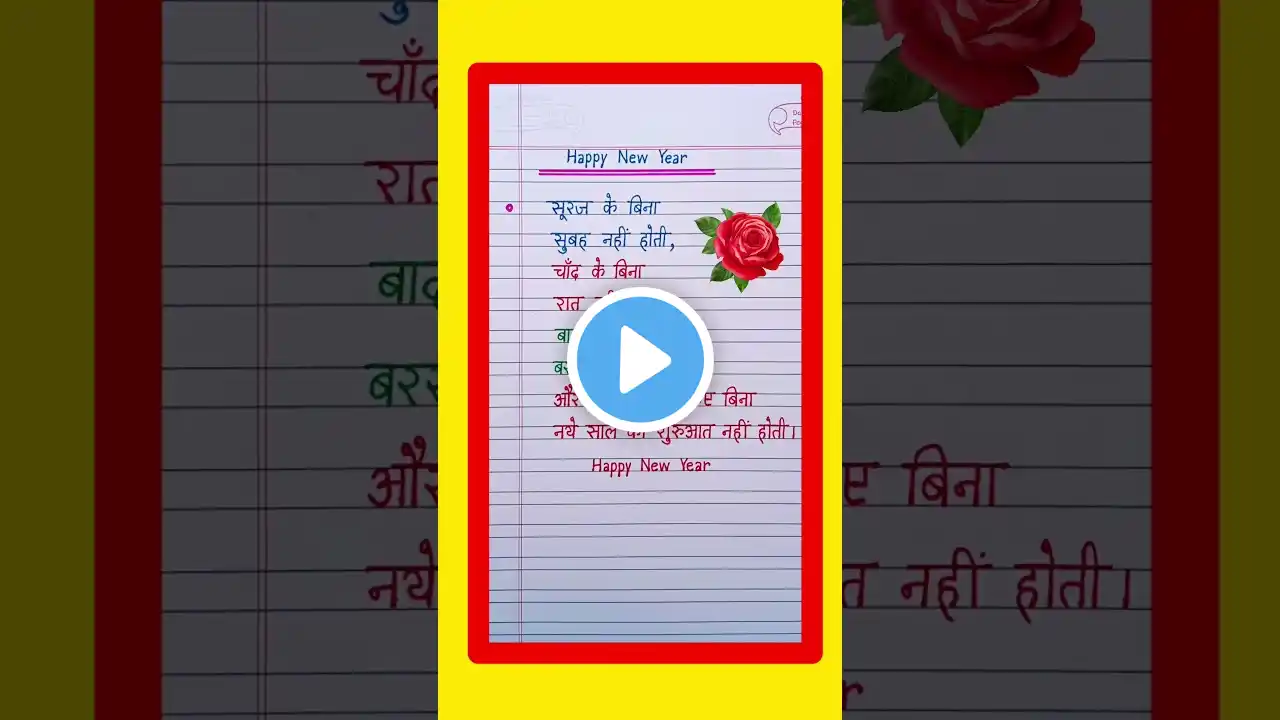 Happy New Year
सूरज के बिना
सुबह नहीं होती,
चाँद के बिना
रात
और बिना
नये साल की शुरुआत नहीं होती।
Happy New Year